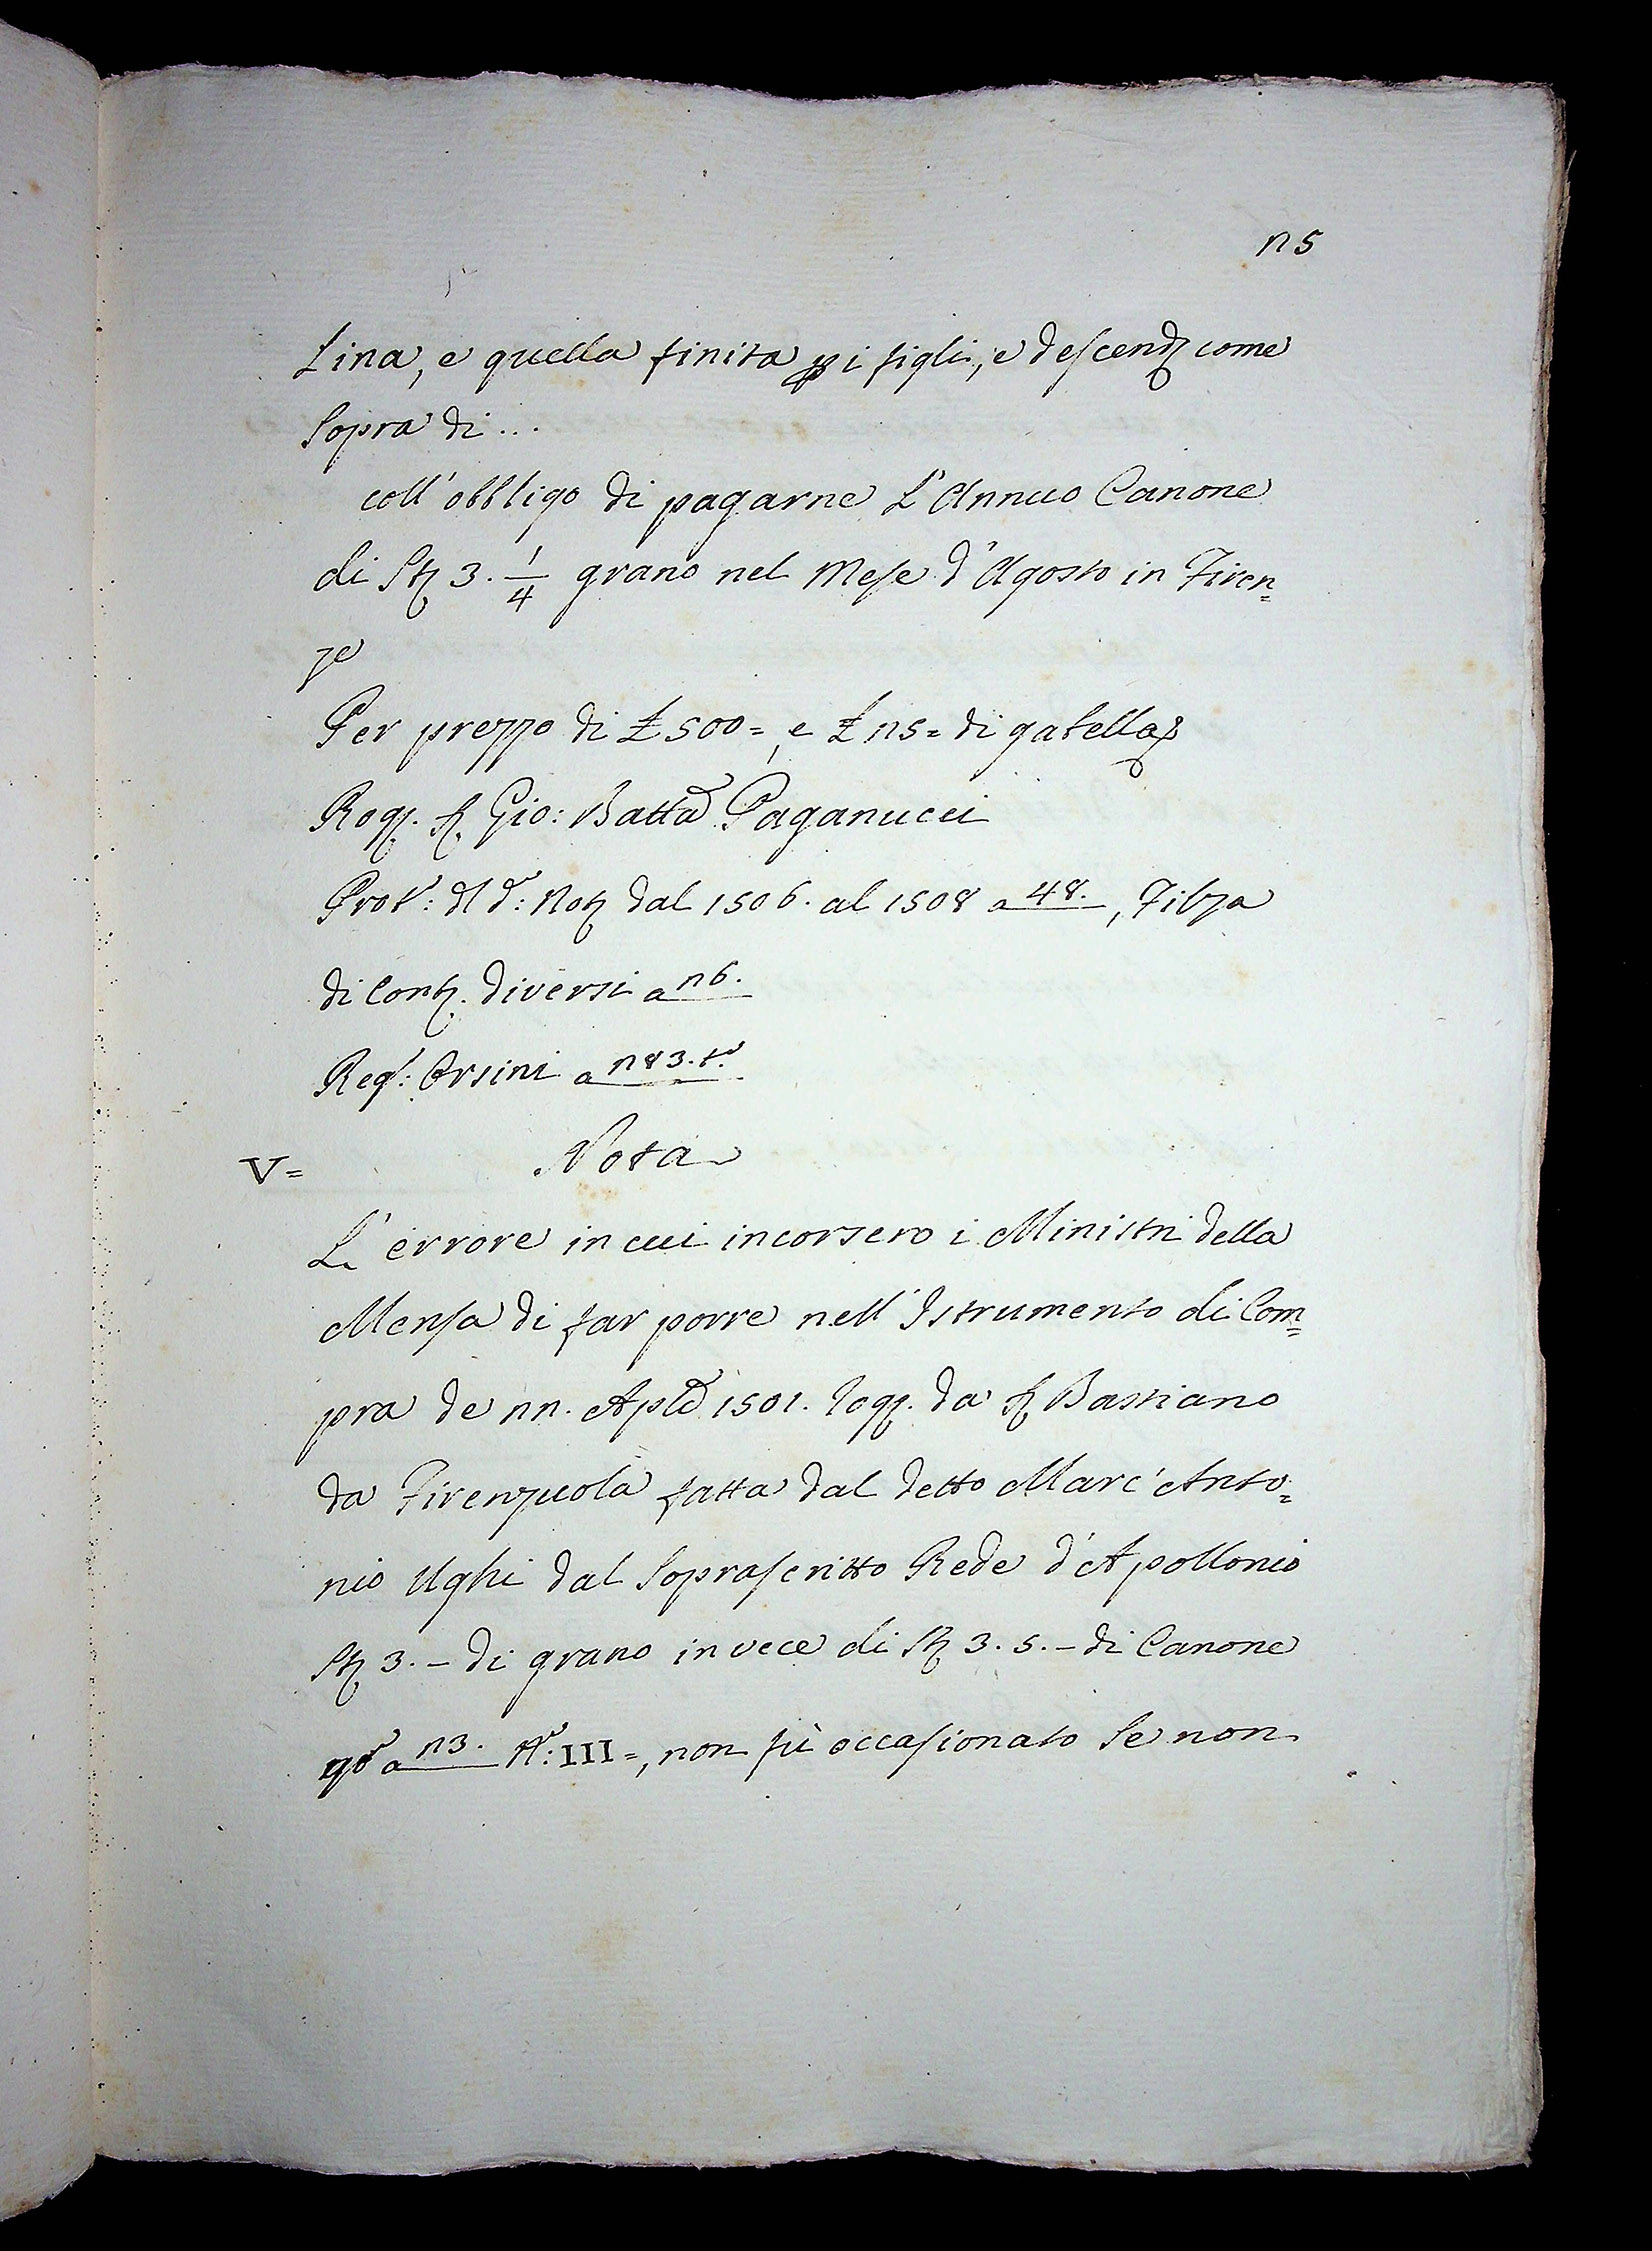 25
Lina, e quella finita p i figli, e descend: come
Sopra di...
coll'obbligo di pagarne L'Annuo Canone
di St: 3. 1/4 grano nel Mese d'Agosto in Firen=
ze
Per prezzo di £ 500=, e £ 25= di gabella
Rog: S. Gio: Batta Paganucci
Prot: d d: Not: dal 1506. al 1508 a 48., Filza
di Cont: diversi a 26.
Reg: Orsini a 283. t.
V= Nota
L'errore in cui incorsero i Ministri della
Mensa di far porre nell'Istrumento di Com=
pra de 22. Aple 1501. Rog: da S. Bastiano
da Firenzuola fatta dal detto Marc'Anto=
nio Ughi dal Soprascritto Rede d'Apollonio
St: 3. - di grano in vece di St: 3. 5. - di Canone
qo a 23. No: III=, non fù occasionato Se non